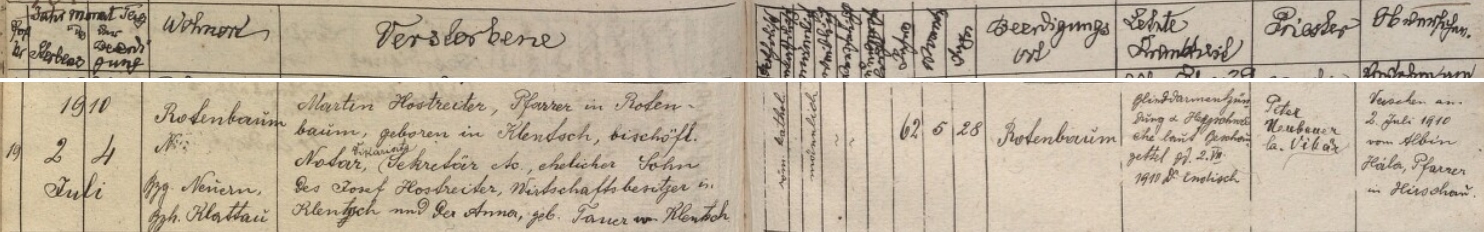 Post Nr
Jahr Monat Tag
des Sterbens
der Beerdigung
Wohnort
Verstorbene
Jahre
Monate
Tage
Beerdigungs
ort
Letzte
Krankheit
Priester
19
1910
2 4
Juli
Rotenbaum
Nº
Bzg. Neuern,
Bzh. Klattau
Martin Hostreiter, Pfarrer in Roten-
baum, geboren in Klentsch, bischöfl.
Vikariats
Notar, Sekretär etc., ehelicher Sohn
des Josef Hostreiter, Wirtschaftsbesitzer in
Klentsch und der Anna, geb. Tauer in Klentsch
röm. kathol.
männlich
62
5
28
Rotenbaum
Blinddarmentzün
dung & Herzschwä
che laut Beschau
zettel gd. 2.VII
1910 Dr
Peter
Neubauer
Vikar
Versehen am
2. Juli 1910
vom Albin
Hála, Pfarrer
in Hirschau.